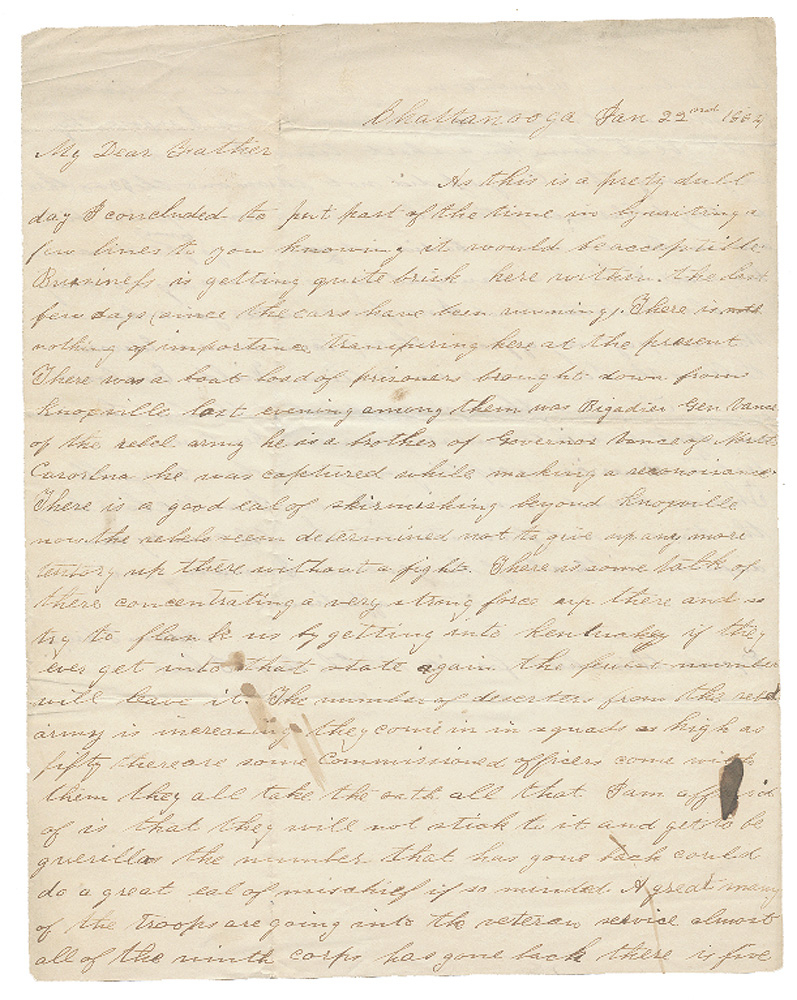 Chattanooga Jan 22nd 1864
My Dear Father
As this is a prety dull
day I concluded to put part of the time in bywriting a
few lines to you knowing it would be acceptible
Business is getting quite brisk here within the last
few days (since the cars have been running). There is
nothing of importance transpiring here at the present
There was a boat load of prisoners brought down from
Knoxville last evening among them was Brigadier Gen Vance
of the rebel army he is a brother of Governor Vance of North
Carorlna he was captured while making a reconoisance
There is a good eal of skirmishing beyond Knoxville
now the rebels seem determined not to give up any more
teritory up there without a fight. There is some talk of
there concentrating a very strong force up there and so
try to flank us by getting into Kentuckey if they
ever get into that state again the fewest number
will leave it. The number of deserters from the rebel
army is increasing they come in in squads as high as
fifty there are some Commissioned officers come with
them they all take the oath all that I am affraid
of is that they will not stick to it and get to be
guerillas the number that has gone back could
do a great eal of mischief if so minded. A great many
of the troops are going into the veteran service almost
all of the ninth corps has gone back there is five